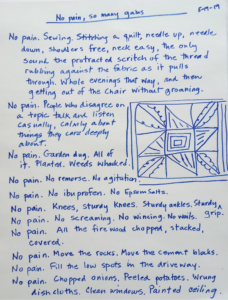 No pain, so many gabs
5-19-19
No pain. Sewing. Stitching a quilt, needle up, needle
down, shoulders free, neck easy, the only
sound the protracted scritch of the thread
rubbing against the fabric as it pulls
through. Whole evenings that way, and then
getting out of the chair without groaning.
No pain. People who disagree on
a topic talk and listen
casually, calmly about
things they care deeply
about.
No pain. Garden dug. All of
it. Planted. Weeds whacked.
No pain. No remorse. No agitation.
No pain. No ibuprofen. No Epsom salts.
No pain. Knees, sturdy knees. Sturdy ankles. Sturdy grip.
No pain. No screaming. No wincing. No wails.
No pain. All the firewood chopped, stacked,
covered.
No pain. Move the rocks. Move the cement blocks.
No pain. Fill the low spots in the driveway.
No pain. Chopped onions, Peeled potatoes. Wrung
dishcloths. Clean windows. Painted ceiling.